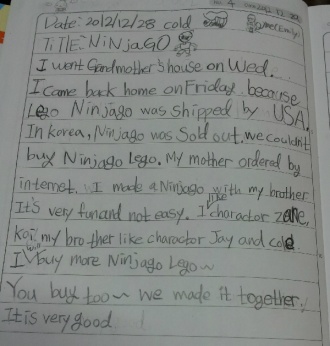 Date: 2012/12/28 cold
TiTLE: NiNjaGO
I went Grandmother's house on Wed.
I came back home on Friday because
Lego Ninjago was shipped by USA.
In Korea, Ninjago was Sold out. we couldn't
buy Ninjago Lego. My mother ordered by
internet. I made a Ninjago with my brother
It's very fun and not easy. I like charactor zane,
Kai, my brother like charactor Jay and cole
I will buy more Ninjago Lego~
You buy too~ we made it together.
It is very good